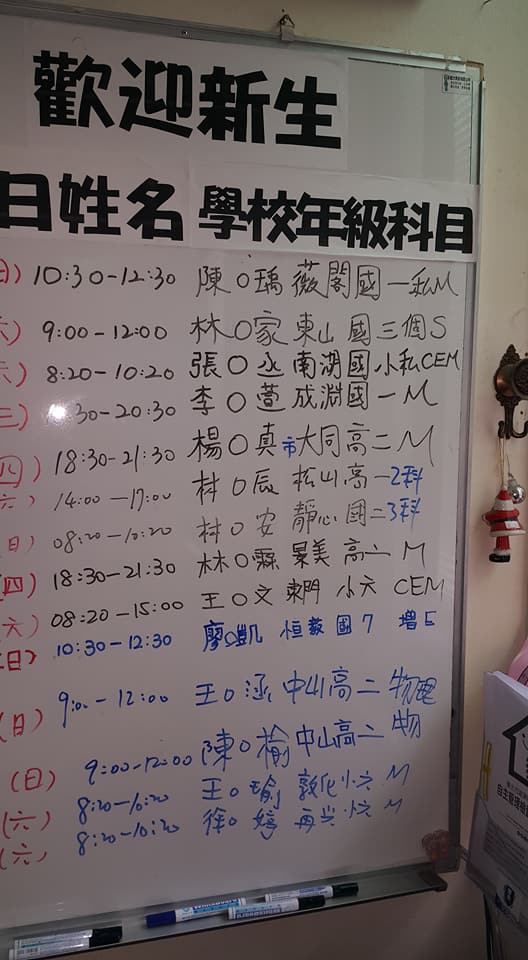 歡迎新生
日姓名 學校年級科目
日) 10:30-12:30 陳O瑀 薇閣國一私M
六) 9:00-12:00 林O家 東山國三個S
六) 8:20-10:20 張O丞 南湖國小私CEM
三) 30-20:30 李O萱 成淵國一M
四) 18:30-21:30 楊O真 市大同高二M
六) 14:00-17:00 林O辰 松山高一2科
日) 08:20-10:20 林O安 靜心國二3科
(四) 18:30-21:30 林O霖 景美高二M
(六) 08:20-15:00 王O文 東門小六 CEM
日) 10:30-12:30 廖O凱 恒毅國7 增E
(日) 9:00-12:00 王O涵 中山高二物
(日) 9:00-12:00 陳O榆 中山高二物
(六) 8:20-10:20 王O瑜 敦化小六M
(六) 8:20-10:20 徐O婷 再興小六M
自主管理